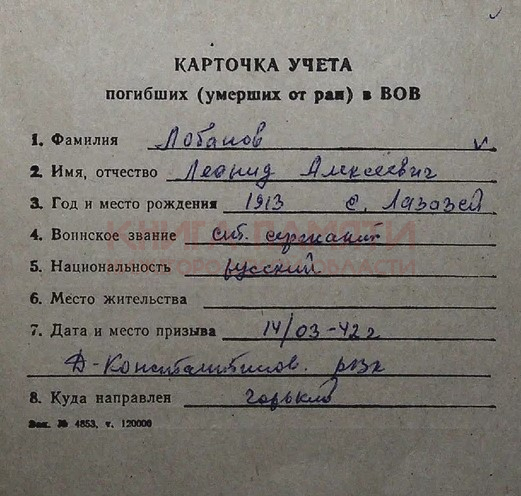 КАРТОЧКА УЧЕТА
погибших (умерших от ран) в ВОВ
1. Фамилия Лобанов
2. Имя, отчество Леонид Алексеевич
3. Год и место рождения 1913 с. Лазазей
4. Воинское звание ст. сержант
5. Национальность русский
6. Место жительства
7. Дата и место призыва 14/03-42г
Д-Константинов. рвк
8. Куда направлен Горький
Зак. № 4853, т. 120000
КНИГА ПАМЯТИ
НИЖЕГОРОДСКОЙ ОБЛАСТИ